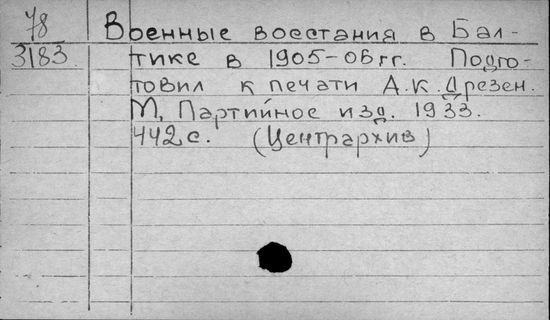 78 Военные восстания в Бал-
3183. тике в 1905-06 гг. Подго-
товил к печати А.К. Дрезен.
М, Партийное изд. 1933.
442 с. (Центрархив)